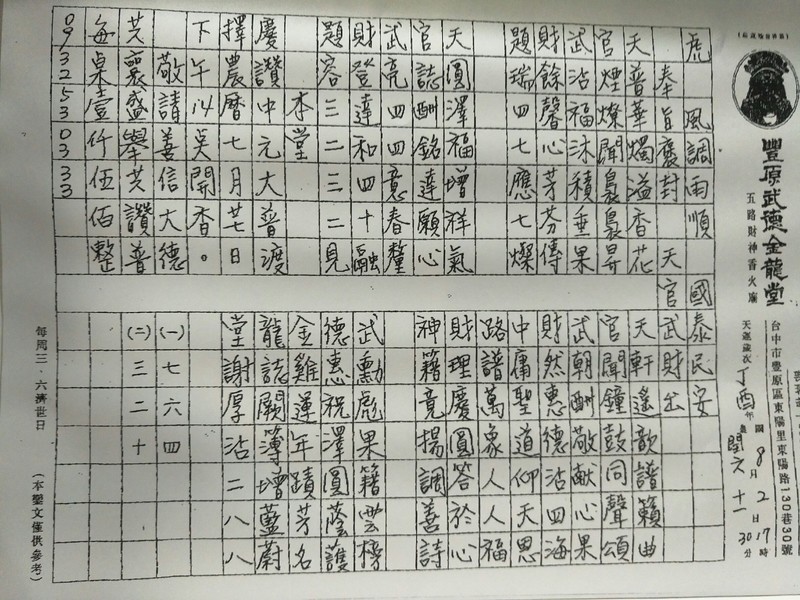 豐原武德金龍堂
五路財神香火廟
台中市豐原區東陽里東陽路130巷30號
天運歲次丁酉年 國8月2日17時30分
農閏六十一
虎 風調雨順 國泰民安
奉旨褒封 天官武財出
天普華燭溢香花
官煙燦聞裊裊昇
武沾福沐積垂果
財餘馨心芳芬傳
題瑞四七應七燦
天圓澤福增祥氣
官誌酬銘達願心
武亮四四意春釐
財登達和四十融
題容三二三二見
本堂
慶讚中元大普渡
擇農曆七月廿七日
下午14吳開香。
敬請善信大德
共襄盛舉共讚普
每桌壹仟伍佰整
0932530333
天軒遙歆譜籟曲
官聞鐘鼓同聲頌
武朝酬敬献心果
財然惠德沾四海
中庸聖道仰天恩
路譜萬象人人福
財理慶圓答於心
神籍竟揚調善詩
武勳彪果籍雲榜
德惠祝澤圓蔭護
金雞運年蹟芳名
龍誌闕簿增藍蔚
堂謝厚沾二八八
(一)七六四
(二)三二十
每周三．六濟世日
(本鑾文僅供參考)